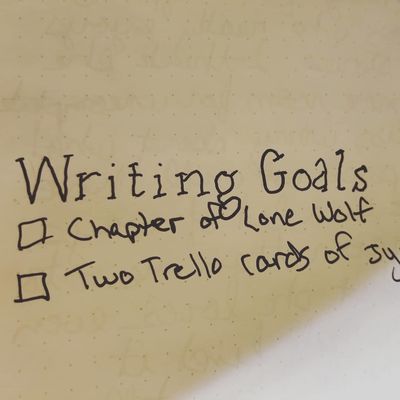 Writing Goals
Chapter of Lone Wolf
Two Trello cards of